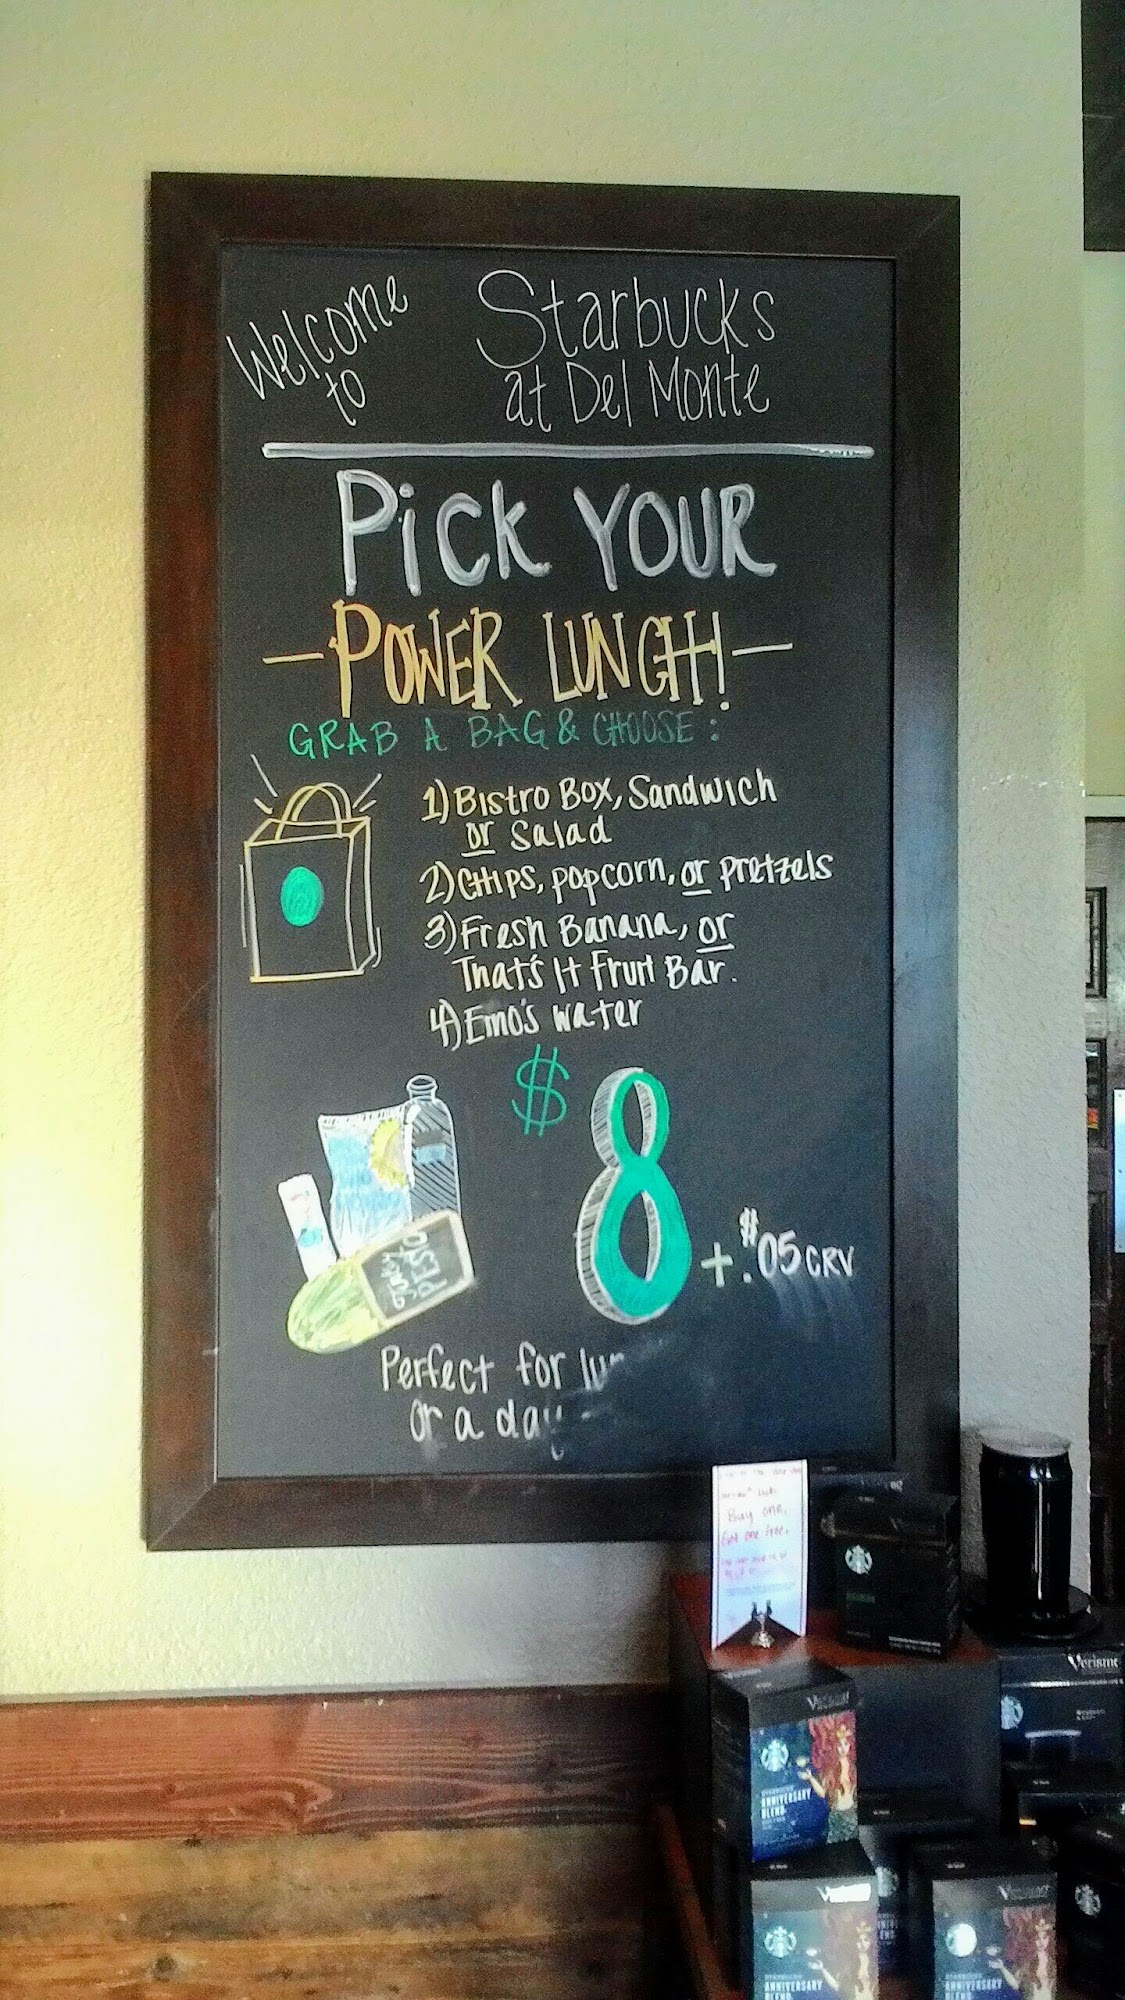 Welcome
to
Starbucks
at Del Monte
Pick YOUR
POWER LUNCH!
GRAB A BAG & CHOOSE:
1) Bistro Box, Sandwich
or Salad
2) Chips, popcorn, or pretzels
3) Fresh Banana, or
That's It Fruit Bar.
4) Emo's water
$8 + $.05 CRV
PESTO
Perfect for
or a day
Buy one,
Get one free.
Verismo
Verismo
ANNIVERSARY
BLEND
Verismo
ANNIVERSARY
Verismo
ANNIVERSARY
BLEND